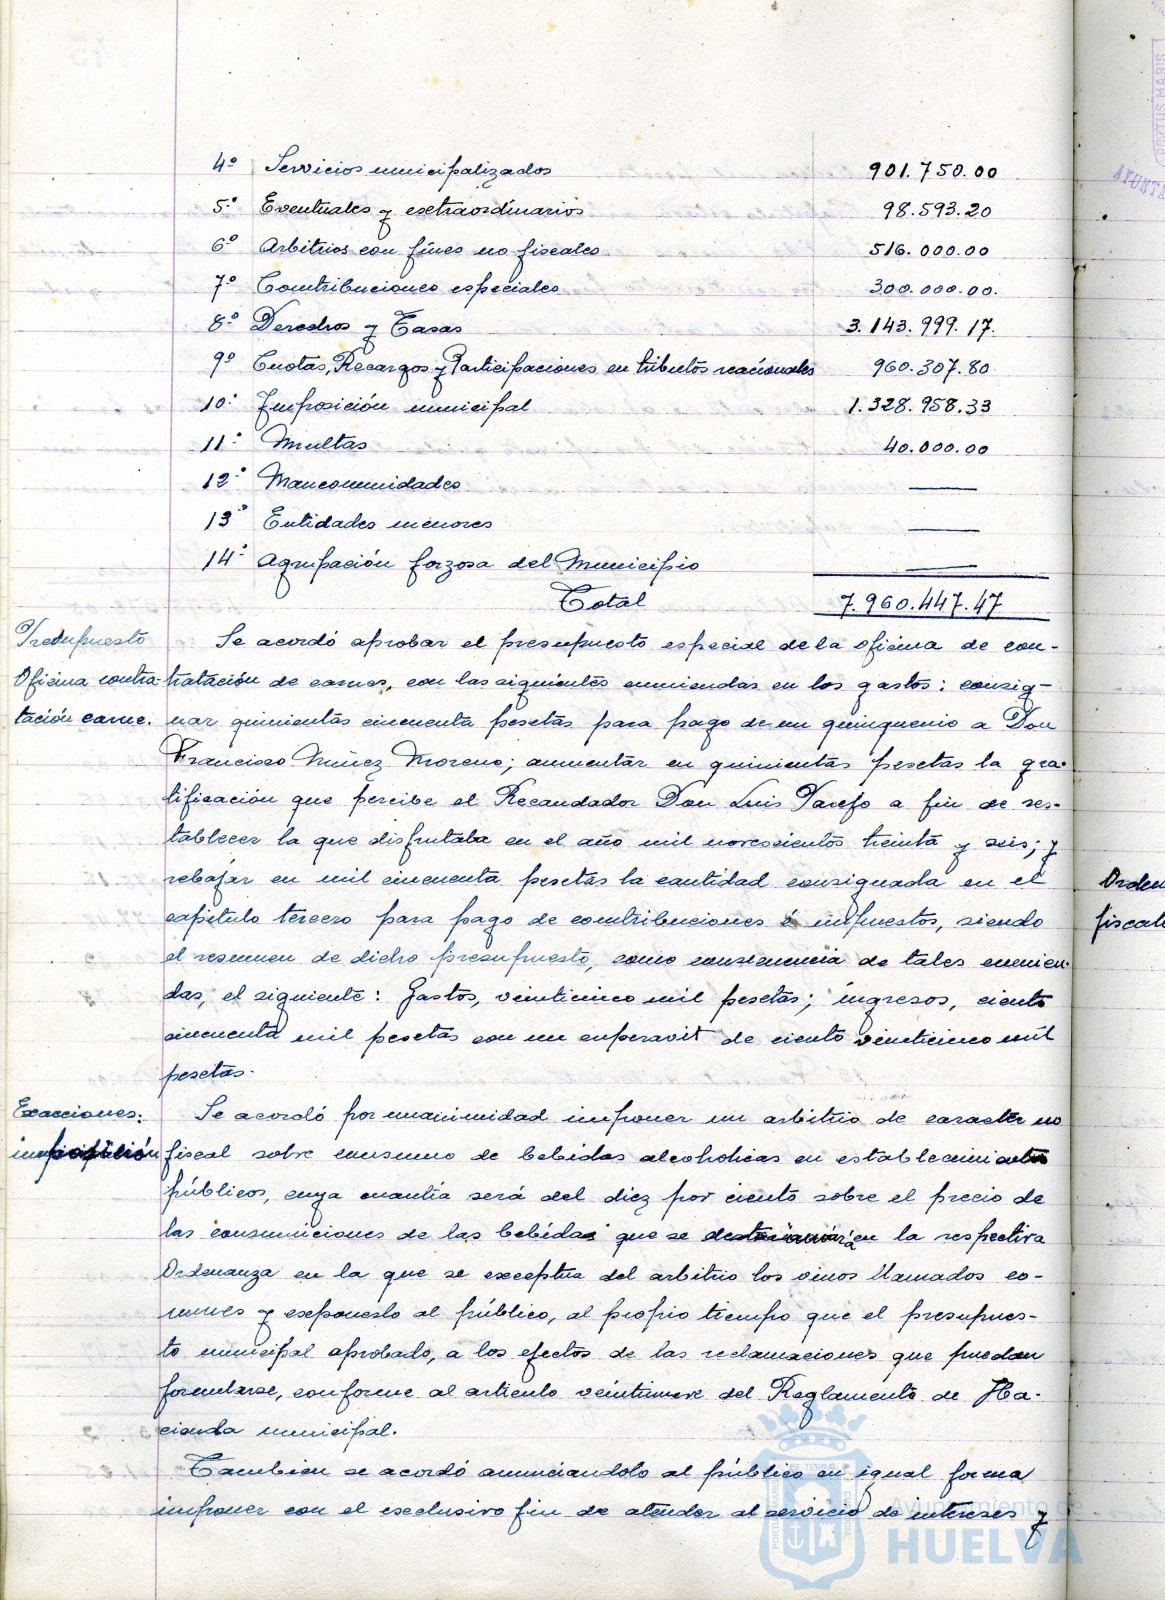 4º Servicios municipalizados 901.750.00
5º Eventuales y extraordinarios 98.593.20
6º Arbitrios con fines no fiscales 516.000.00
7º Contribuciones especiales 300.000.00.
8º Derechos y Tasas 3.143.999.17.
9º Cuotas, Recargos y Participaciones en tributos nacionales 960.307.80
10º Imposición municipal 1.328.958.33
11º Multas 40.000.00
12º Mancomunidades
13º Entidades menores
14º Agrupación forzosa del Municipio
Total 7.960.447.47
Presupuesto Se acordó aprobar el presupuesto especial de la oficina de con-
Oficina contra- tratación de carnes, con las siguientes enmiendas en los gastos: consig-
tación carne. nar quinientas cincuenta pesetas para pago de un quinquenio a Don
Francisco Núñez Moreno; aumentar en quinientas pesetas la gra-
tificación que percibe el Recaudador Don Luis a fin de res-
tablecer la que disfrutaba en el año mil novescientos treinta y seis; y
rebajar en mil cincuenta pesetas la cantidad consignada en el
capítulo tercero para pago de contribuciones é impuestos, siendo
el resumen de dicho presupuesto, como consecuencia de tales enmien-
das, el siguiente: Gastos, veinticinco mil pesetas; ingresos, ciento
cincuenta mil pesetas con un superavit de ciento veinticinco mil
pesetas.
Exacciones: Se acordó por unanimidad imponer un arbitrio de caracter no
imposición fiscal sobre consumo de bebidas alcoholicas en establecimientos
públicos, cuya cuantía será del diez por ciento sobre el precio de
las consumiciones de las bebidas que se en la respectiva
Ordenanza en la que se exceptua del arbitrio los vinos llamados co-
munes y exponerlo al público, al propio tiempo que el presupues-
to municipal aprobado, a los efectos de las reclamaciones que puedan
formularse, conforme al articulo veintinueve del Reglamento de Ha-
cienda municipal.
Tambien se acordó anunciandolo al público en igual forma
imponer con el exclusivo fin de atender al servicio de intereses y
Orden
fiscal
PORTUS MARIS
AYUNTA
Ayuntamiento de
HUELVA